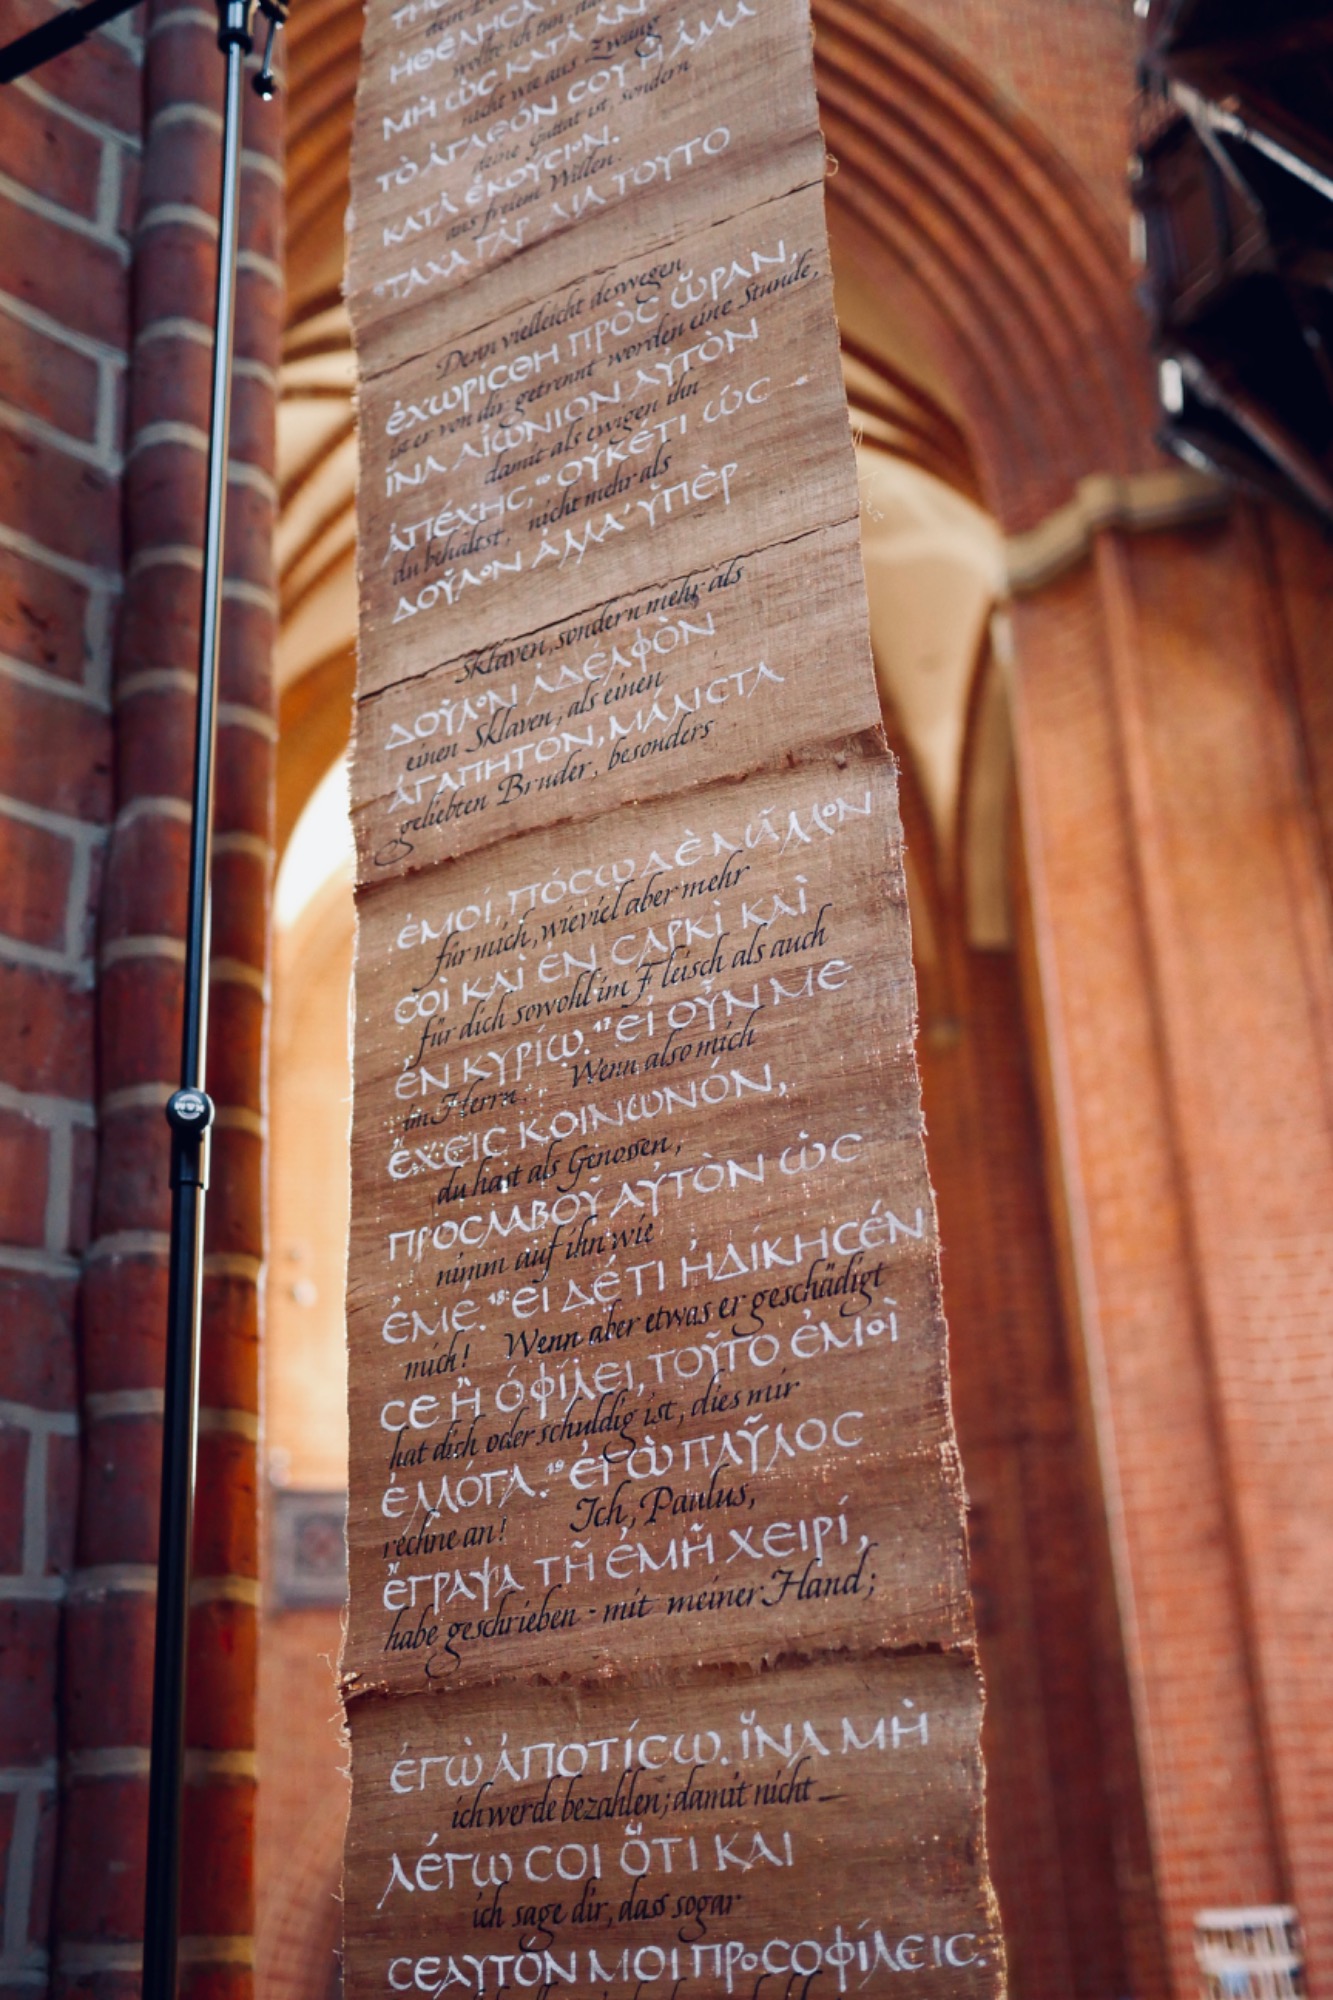 ἨΘΈΛΗϹΑ
wollte ich tun, da
ΜῊ ὩϹ ΚΑΤᾺ ἈΝ
nicht wie aus Zwang
ΤῸ ἈΓΑΘΌΝ ϹΟΥ ἮΙ ἈΜΑ
deine Guttat ist, sondern
ΚΑΤᾺ ἙΚΟΎϹΙΟΝ.
aus freiem Willen.
ΤΆΧΑ ΓᾺΡ ΔΙΑ ΤΟΥΤΟ
Denn vielleicht deswegen
ἘΧΩΡΊϹΘΗ ΠΡῸϹ ὭΡΑΝ,
ist er von dir getrennt worden eine Stunde,
ἽΝΑ ΑἸΩΝΙΟΝ ΑΥ̓ΤῸΝ
damit als ewigen ihn
ἈΠΈΧΗϹ, 16 ΟΥ̓ΚΈΤΙ ὩϹ
du behältst, nicht mehr als
ΔΟΥ͂ΛΟΝ ἈΛΛ' ΥΠῈΡ
Sklaven, sondern mehr als
ΔΟΥ͂ΛΟΝ ἈΔΕΛΦῸΝ
einen Sklaven, als einen
ἈΓΑΠΗΤΌΝ, ΜΆΛΙϹΤΑ
geliebten Bruder, besonders
ἘΜΟΊ, ΠΌϹΩ ΔῈ ΜΑ͂ΛΛΟΝ
für mich, wieviel aber mehr
ϹΟῚ ΚΑῚ ἘΝ ϹΑΡΚῚ ΚΑῚ
für dich sowohl im Fleisch als auch
ἘΝ ΚΥΡΊΩ. 17 ΕἸ ΟΥ̓͂Ν ΜΕ
im Herrn. Wenn also mich
ἜΧΕΙϹ ΚΟΙΝΩΝΌΝ,
du hast als Genossen,
ΠΡΟϹΛΑΒΟΥ͂ ΑΥ̓ΤῸΝ ὩϹ
nimm auf ihn wie
ἘΜΈ. 18 ΕἸ ΔΈ ΤΙ ἨΔΊΚΗϹΈΝ
mich! Wenn aber etwas er geschädigt
ϹΕ Ἢ ὈΦΊΛΕΙ, ΤΟΥ͂ΤΟ ἘΜΟῚ
hat dich oder schuldig ist, dies mir
ἘΛΛΌΓΑ. 19 ἘΓῺ ΠΑΥ͂ΛΟϹ
rechne an! Ich, Paulus,
ἜΓΡΑΨΑ ΤΗ͂ ἘΜΗ͂ ΧΕΙΡΊ,
habe geschrieben - mit meiner Hand;
ἘΓῺ ἈΠΟΤΊϹΩ. ἽΝΑ ΜῊ
ich werde bezahlen; damit nicht –
ΛΈΓΩ ϹΟΙ ὍΤΙ ΚΑΙ
ich sage dir, dass sogar
ϹΕΑΥΤΌΝ ΜΟΙ ΠΡΟϹΟΦΊΛΕΙϹ.
K&M